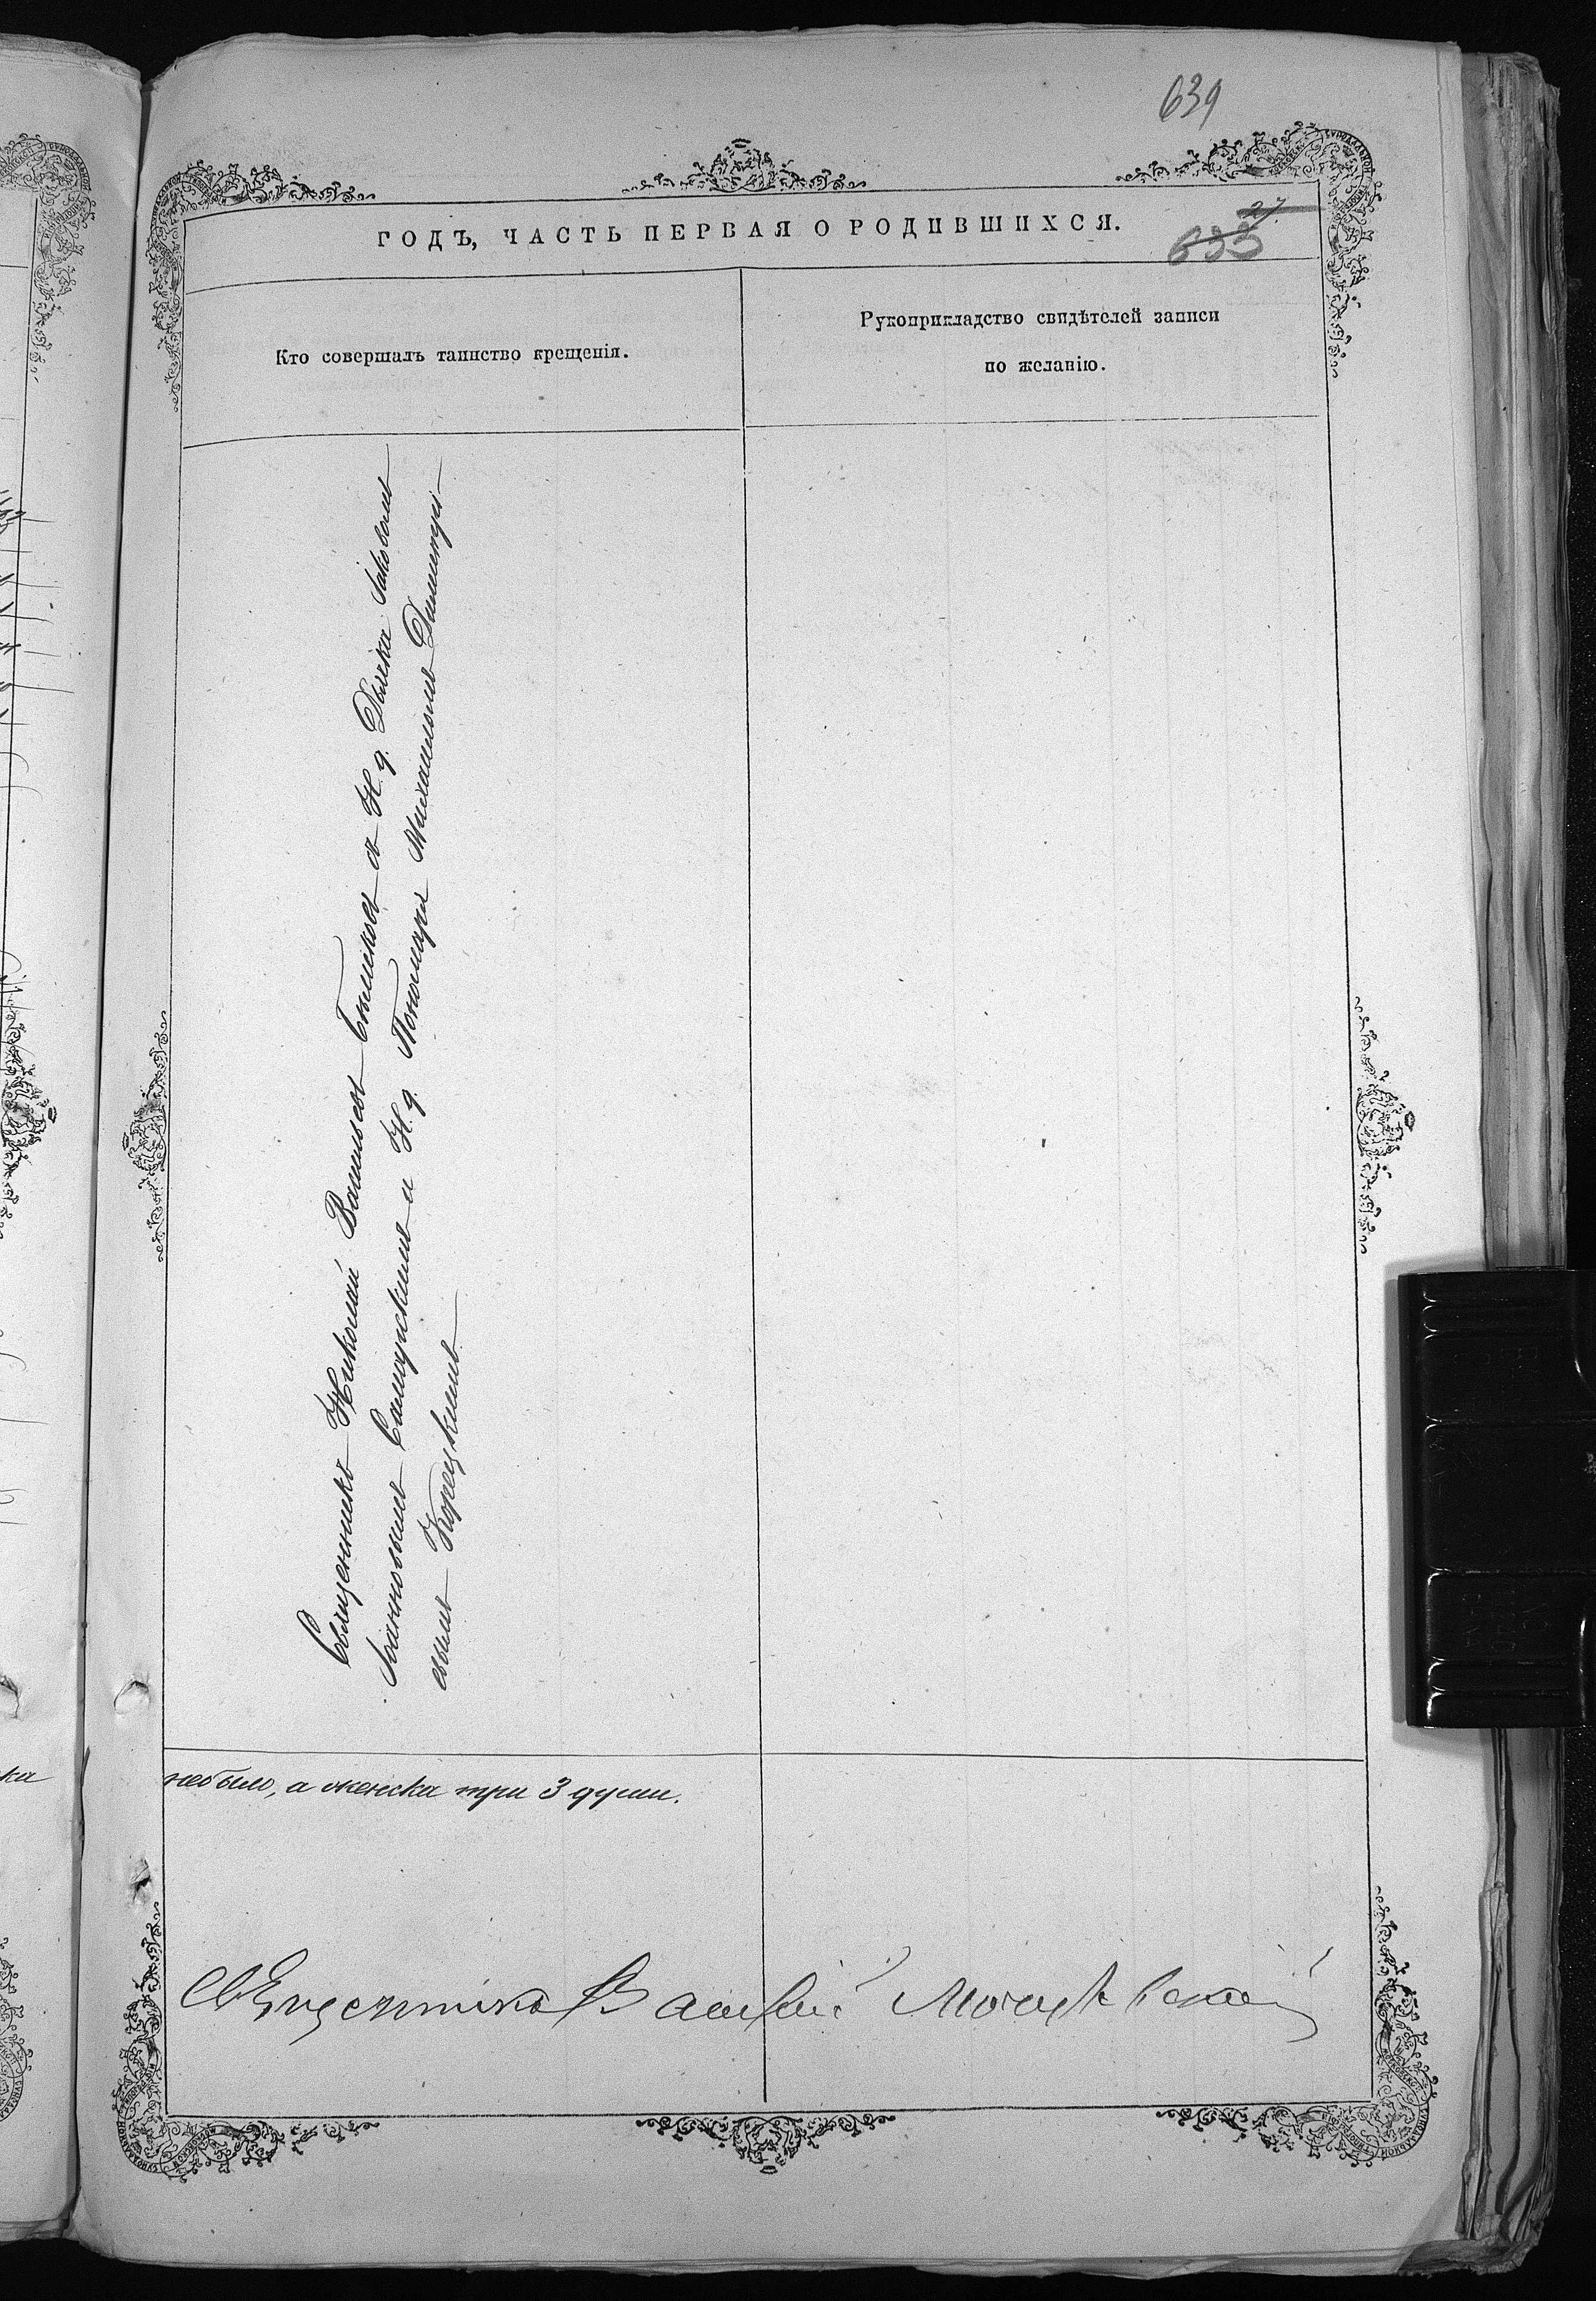 639
ГОДЪ, ЧАСТЬ ПЕРВАЯ О РОДИВШИХСЯ.
27
633
Кто совершалъ таинство крещенія.
Рукоприкладство свидѣтелей записи
по желанію.
Священникъ Николай Васильевъ съ И. д. Дьячка Іаковомъ
Іоанновымъ и И. д. Пономаря Михаиломъ Димитрі-
евымъ Корецкимъ
небыло, а женска три 3 души.
Священникъ Василий